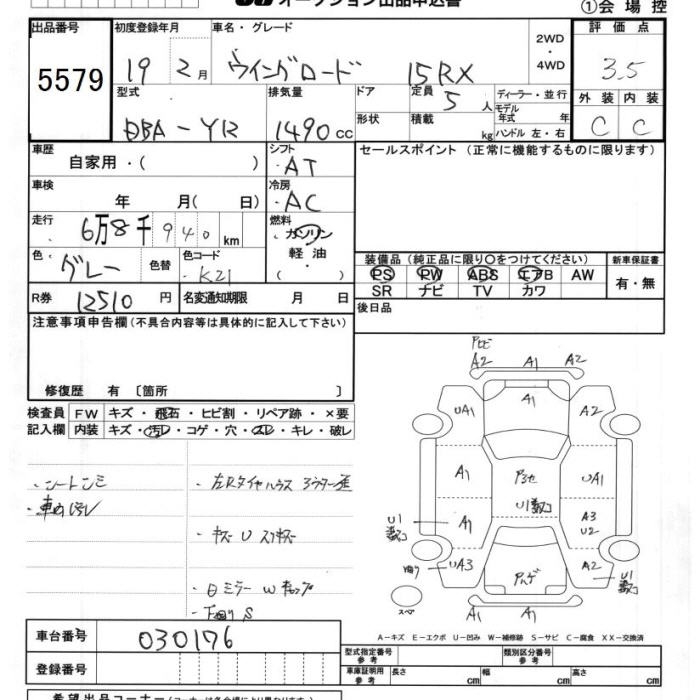 オークション出品申込書
①会場控
出品番号 初度登録年月 車名・グレード 2WD・4WD 評価点
5579 19 2月 ウイングロード 15RX 3.5
型式 排気量 ドア 定員 5人 ディーラー・並行 外装 内装
DBA-Y12 1490cc 形状 積載 kg モデル年式 年 ハンドル 左・右 C C
車歴 自家用・( ) シフト AT セールスポイント (正常に機能するものに限ります)
車検 年 月( 日) 冷房 AC
走行 6万8千940km 燃料 ガソリン
軽油
( )
色 グレー 色替 色コード K21
装備品 (純正品に限り○をつけてください) 新車保証書
PS PW ABS エアB AW 有・無
SR ナビ TV カワ
R券 12510円 名変通知期限 月 日 後日品
注意事項申告欄 (不具合内容等は具体的に記入して下さい)
修復歴 有 〔箇所 〕
検査員 FW キズ・飛石・ヒビ割・リペア跡・×要
記入欄 内装 キズ・汚レ・コゲ・穴・スレ・キレ・破レ
・シートシミ
・左Rタイヤハウス
・キズ U スリキズ
・下廻り S
A2 A1 A2
UA1 A1 A2
A1 UA1
U1
U1 A1 A3
U2
UA3 A2 U1
A1 A1
スペ
A-キズ E-エクボ U-凹み W-補修跡 S-サビ C-腐食 XX-交換済
車台番号 030176
登録番号
型式指定番号 参考 類別区分番号 参考
車庫証明用 参考 長さ cm 幅 cm 高さ cm
希望出品コーナー